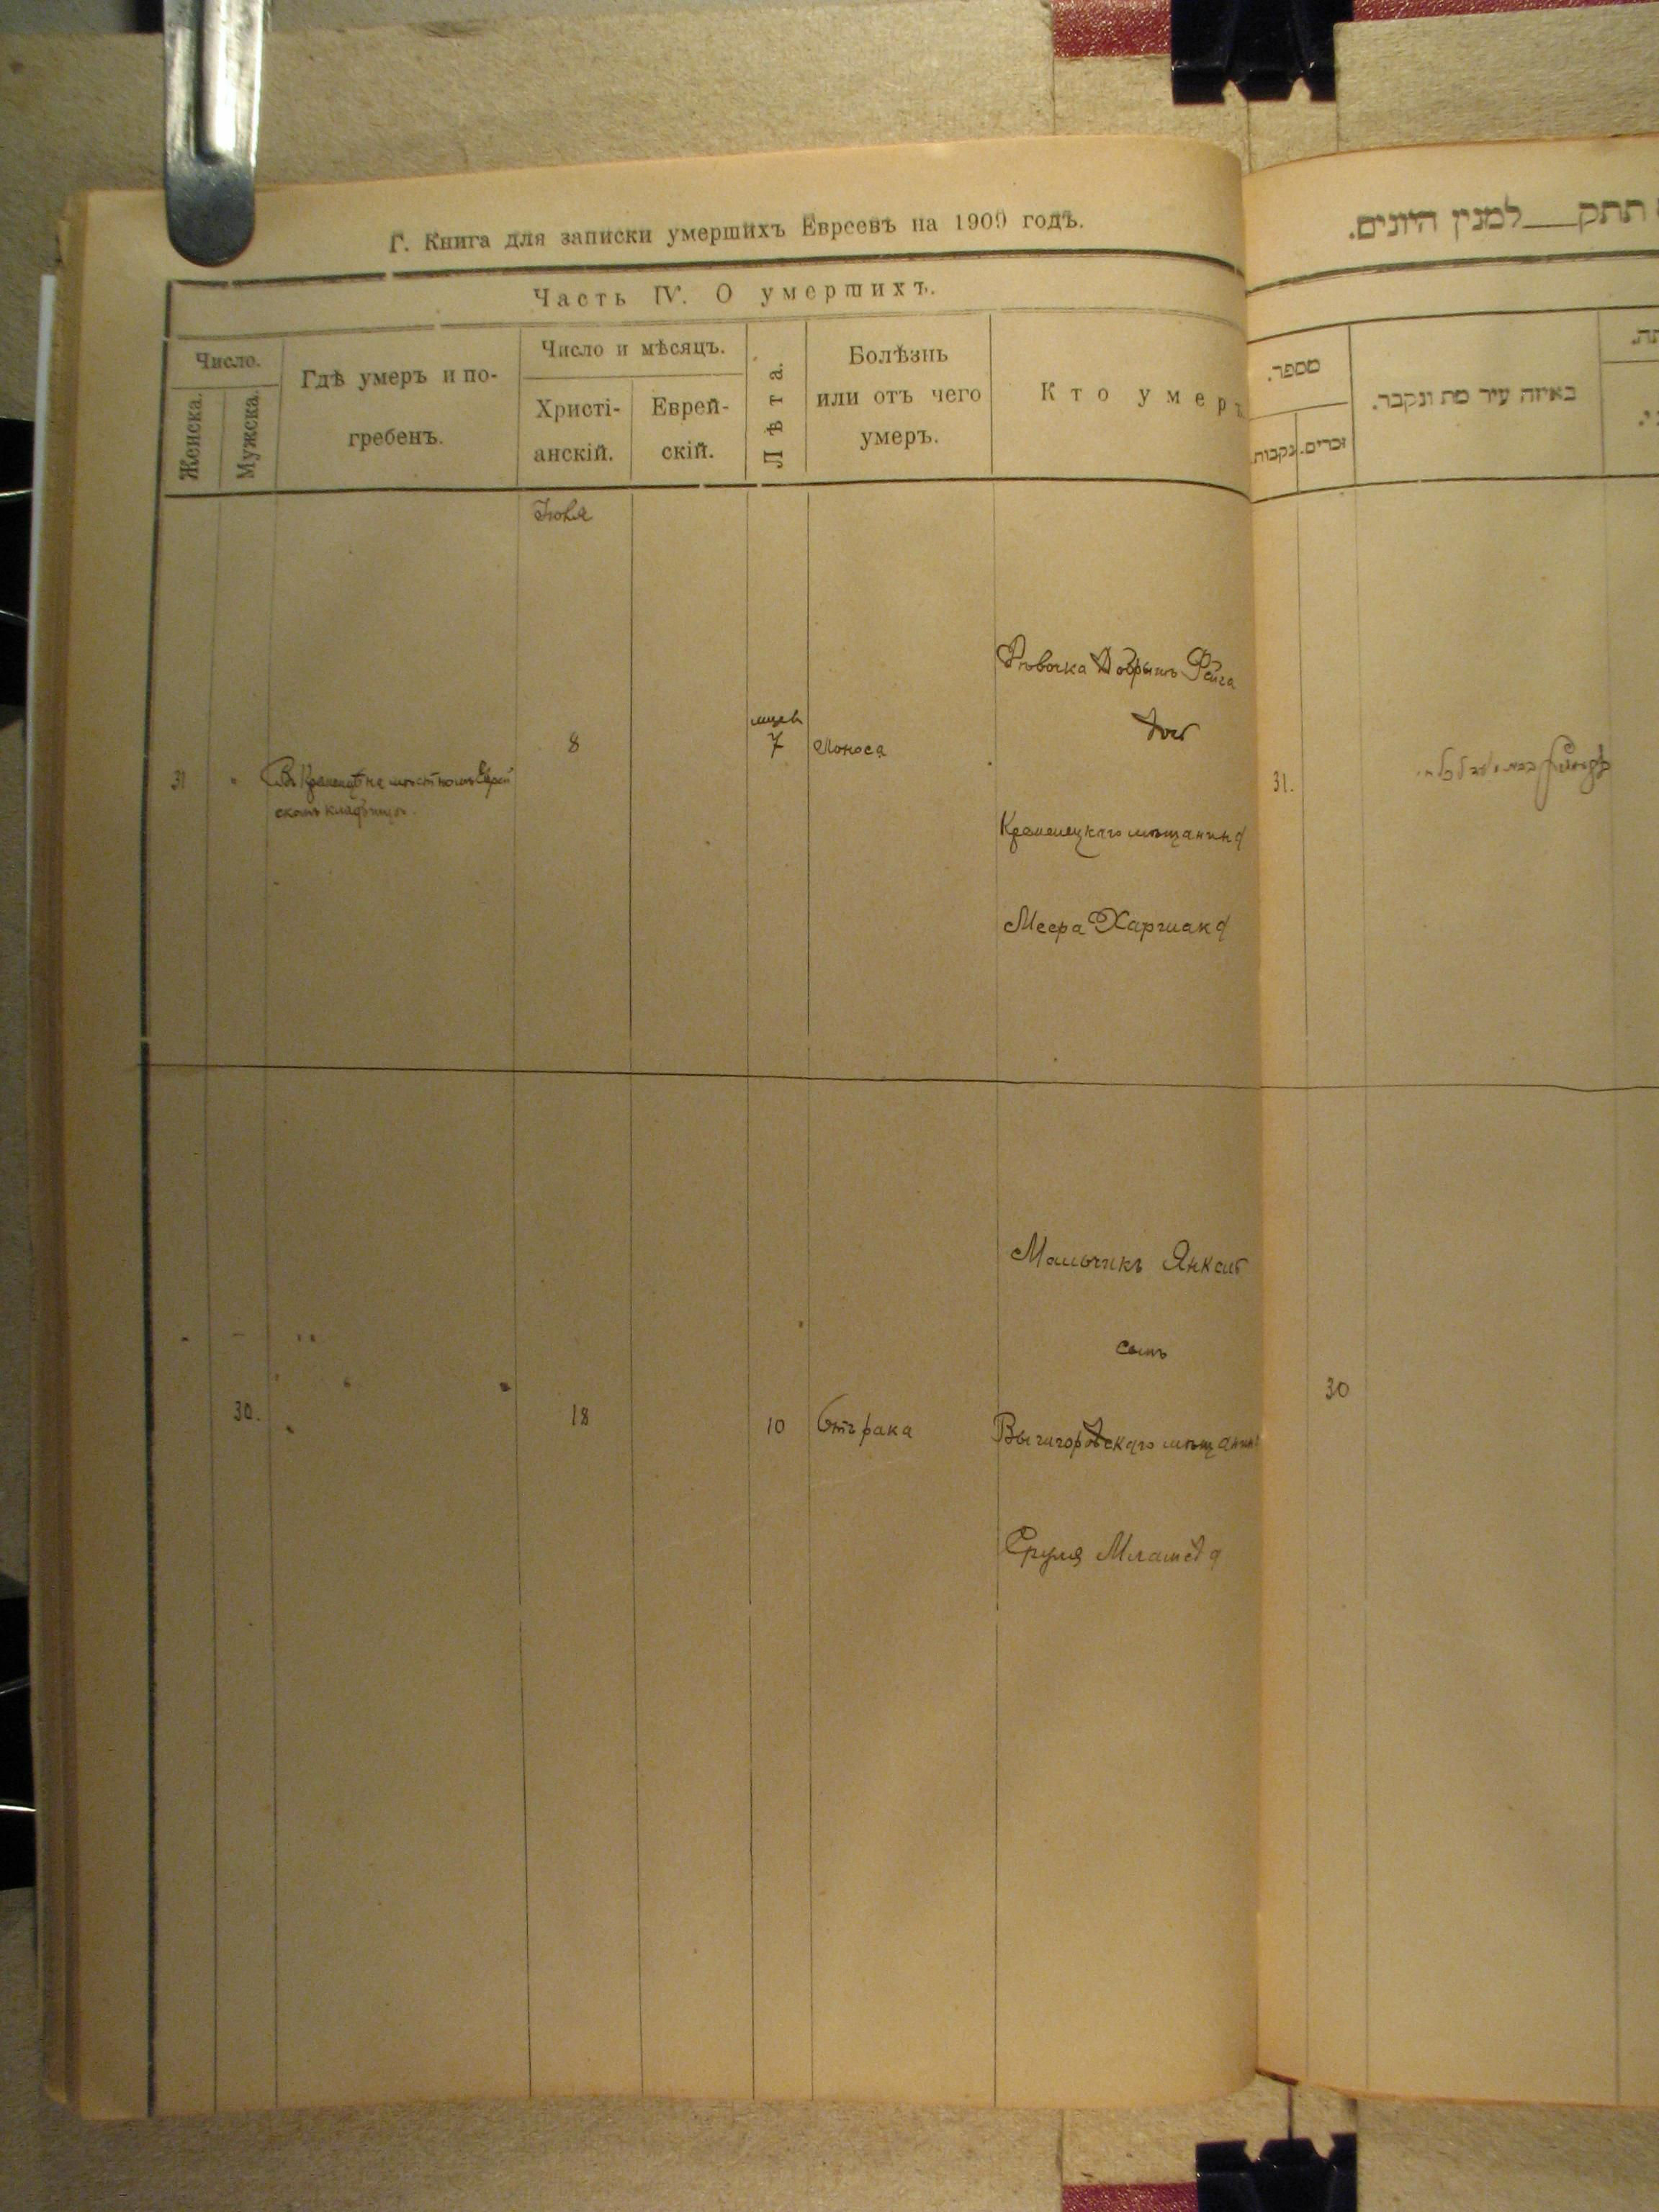 Г. Книга для записки умершихъ Евреевъ на 1909 годъ.
Часть IV. О умершихъ.
Число.
Женска.
Мужска.
Гдѣ умеръ и по-
гребенъ.
Число и мѣсяцъ.
Христі-
анскій.
Еврей-
скій.
Лѣта.
Болѣзнь
или отъ чего
умеръ.
Кто умеръ
Іюля
31
Въ Кременцѣ на мѣстномъ Еврей
скомъ кладбищѣ.
8
7
Поноса
Фейга
дочь
Кременецкаго мѣщанина
Меера
30.
18
10
Отъ рака
Мальчикъ Янкель
сынъ
Вышгородскаго мѣщанин
Сруля
תתק___למנין היונים.
מספר.
נקבות.
זכרים.
באיזה עיר מת ונקבר.
31.
30